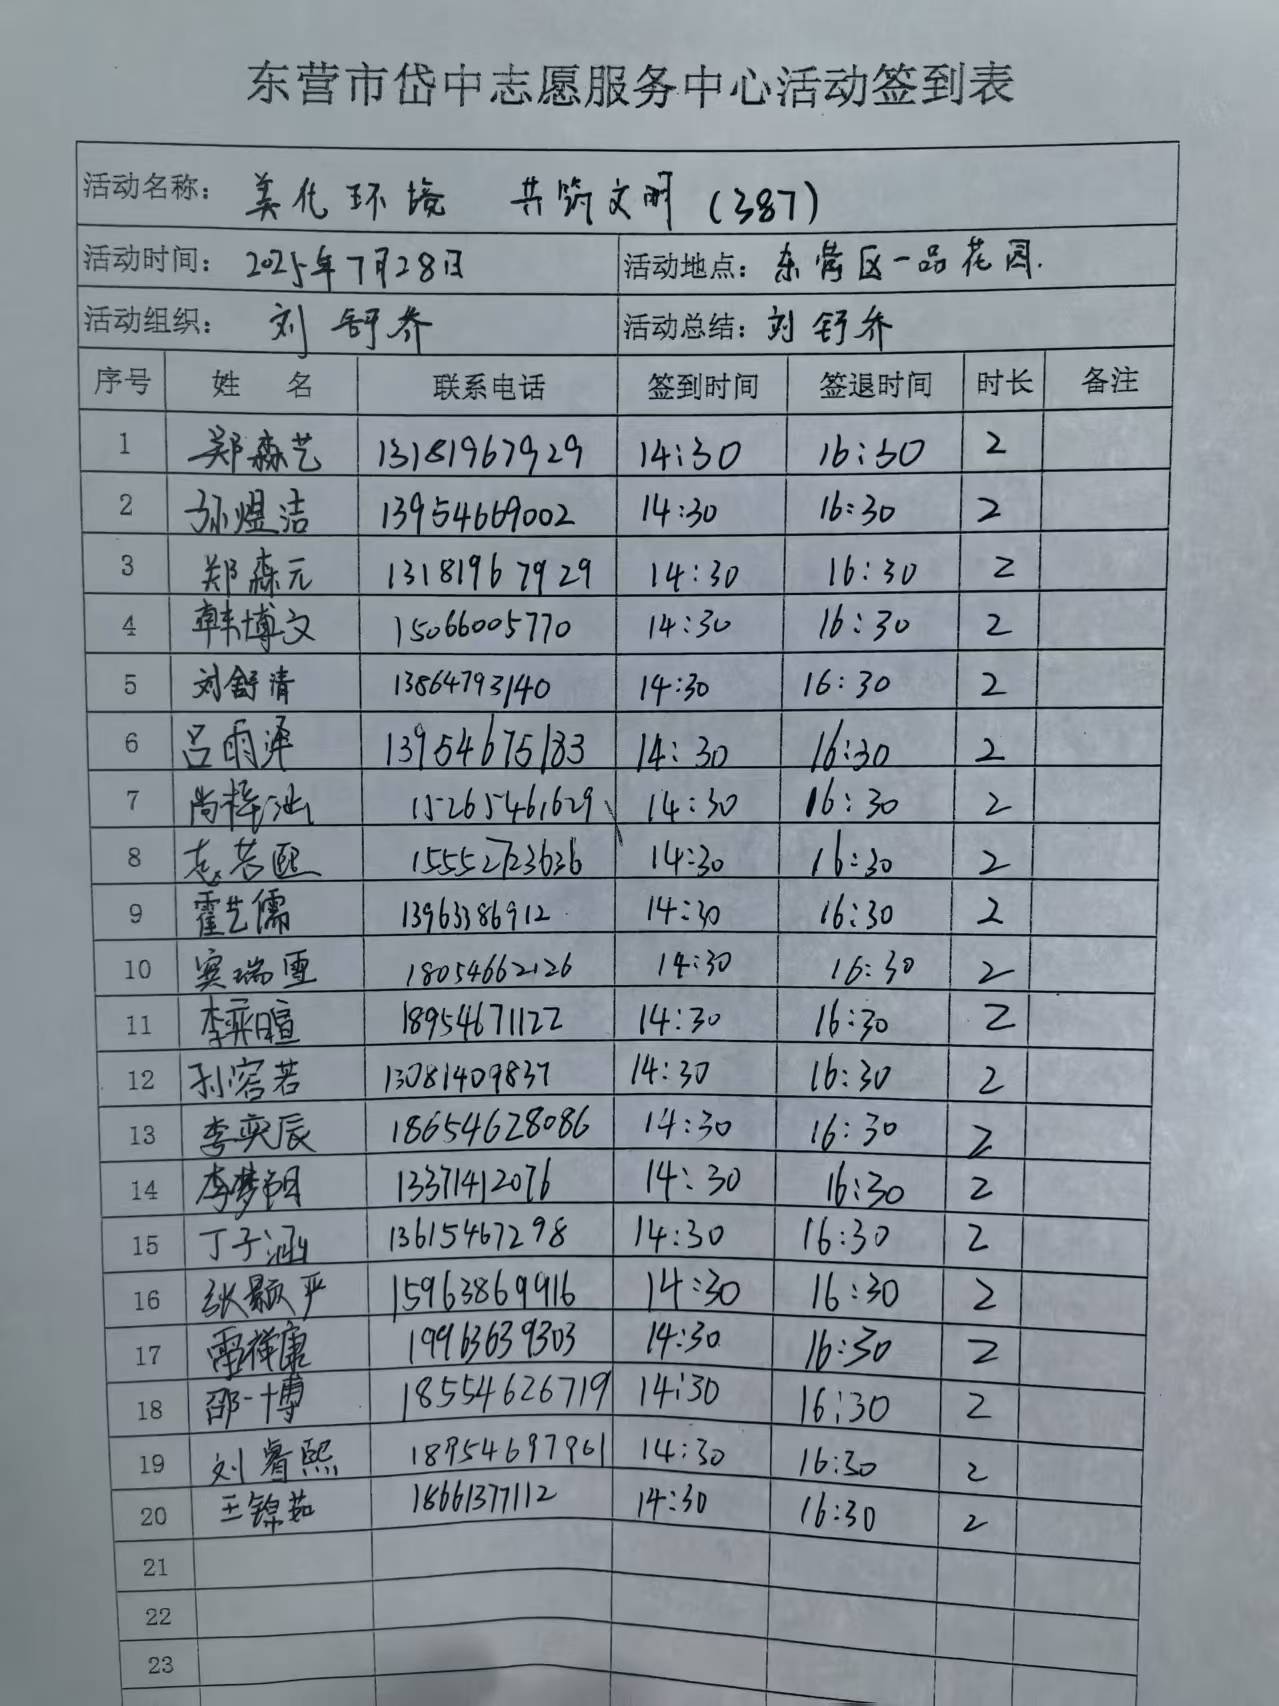 东营市岱中志愿服务中心活动签到表
活动名称： 美化环境 共筑文明（387）
活动时间： 2025年7月28日 活动地点： 东营区一品花园.
活动组织： 刘舒乔 活动总结： 刘舒乔
序号 姓 名 联系电话 签到时间 签退时间 时长 备注
1 郑森艺 13181967929 14:30 16:30 2
2 孙煜洁 13954669002 14:30 16:30 2
3 郑森元 13181967929 14:30 16:30 2
4 韩博文 15066005770 14:30 16:30 2
5 刘舒清 13864793140 14:30 16:30 2
6 吕雨泽 13954675183 14:30 16:30 2
7 尚梓汕 15265461629 14:30 16:30 2
8 15552723636 14:30 16:30 2
9 霍艺儒 13963386912 14:30 16:30 2
10 窦瑞雪 18054662126 14:30 16:30 2
11 李奕暄 18954671122 14:30 16:30 2
12 孙容若 13081409837 14:30 16:30 2
13 李奕辰 18654628086 14:30 16:30 2
14 13371412076 14:30 16:30 2
15 丁子涵 13615467298 14:30 16:30 2
16 张颢严 15963869916 14:30 16:30 2
17 雷祥康 19963639303 14:30 16:30 2
18 邵一博 18554626719 14:30 16:30 2
19 刘睿熙 18954697961 14:30 16:30 2
20 王锦茹 18661377112 14:30 16:30 2
21
22
23